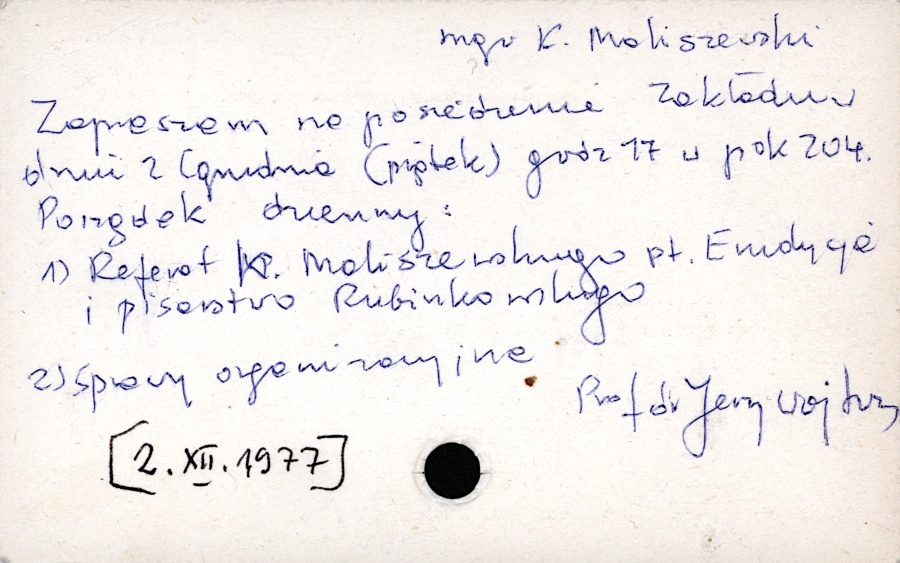 mgr K. Maliszewski
Zapraszam na posiedzenie Zakładu w
dniu 2 grudnia (piątek) godz 17 w pok 204.
Porządek dzienny:
1) Referat K. Maliszewskiego pt. Erudycja
i pisarstwo Rubinkowskiego
2) Sprawy organizacyjne
Prof dr Jerzy Wojtowicz
[2. XII. 1977]